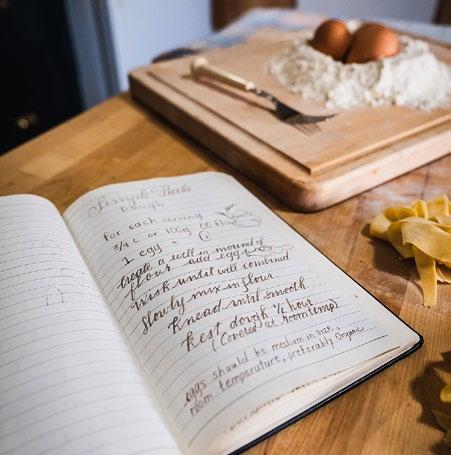 Simple Pasta
Dough
for each serving
3/4 c or 100g 00 flour
1 egg
Create a well in mound of
flour add eggs
Wisk until well combined
Slowly mix in flour
Knead until smooth
Rest dough 1/2 hour
(Covered at room temp)
eggs should be medium in size,
room temperature, preferably Organic